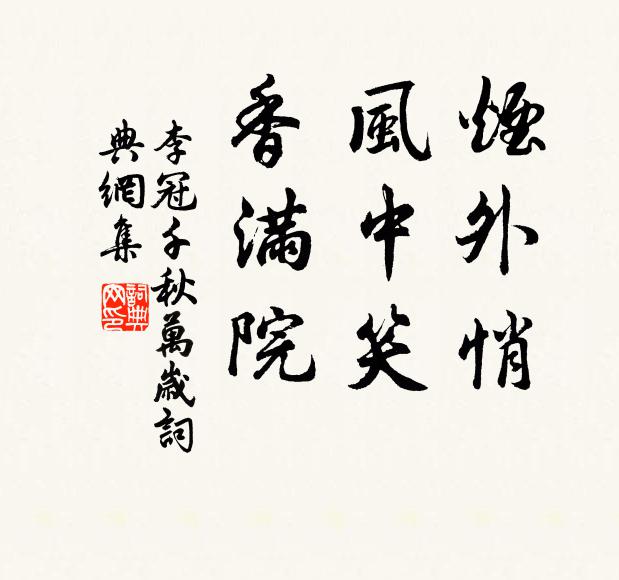 煙外悄
風中笑
香滿院
李冠千秋萬歲詞
典網集
詞典
網印